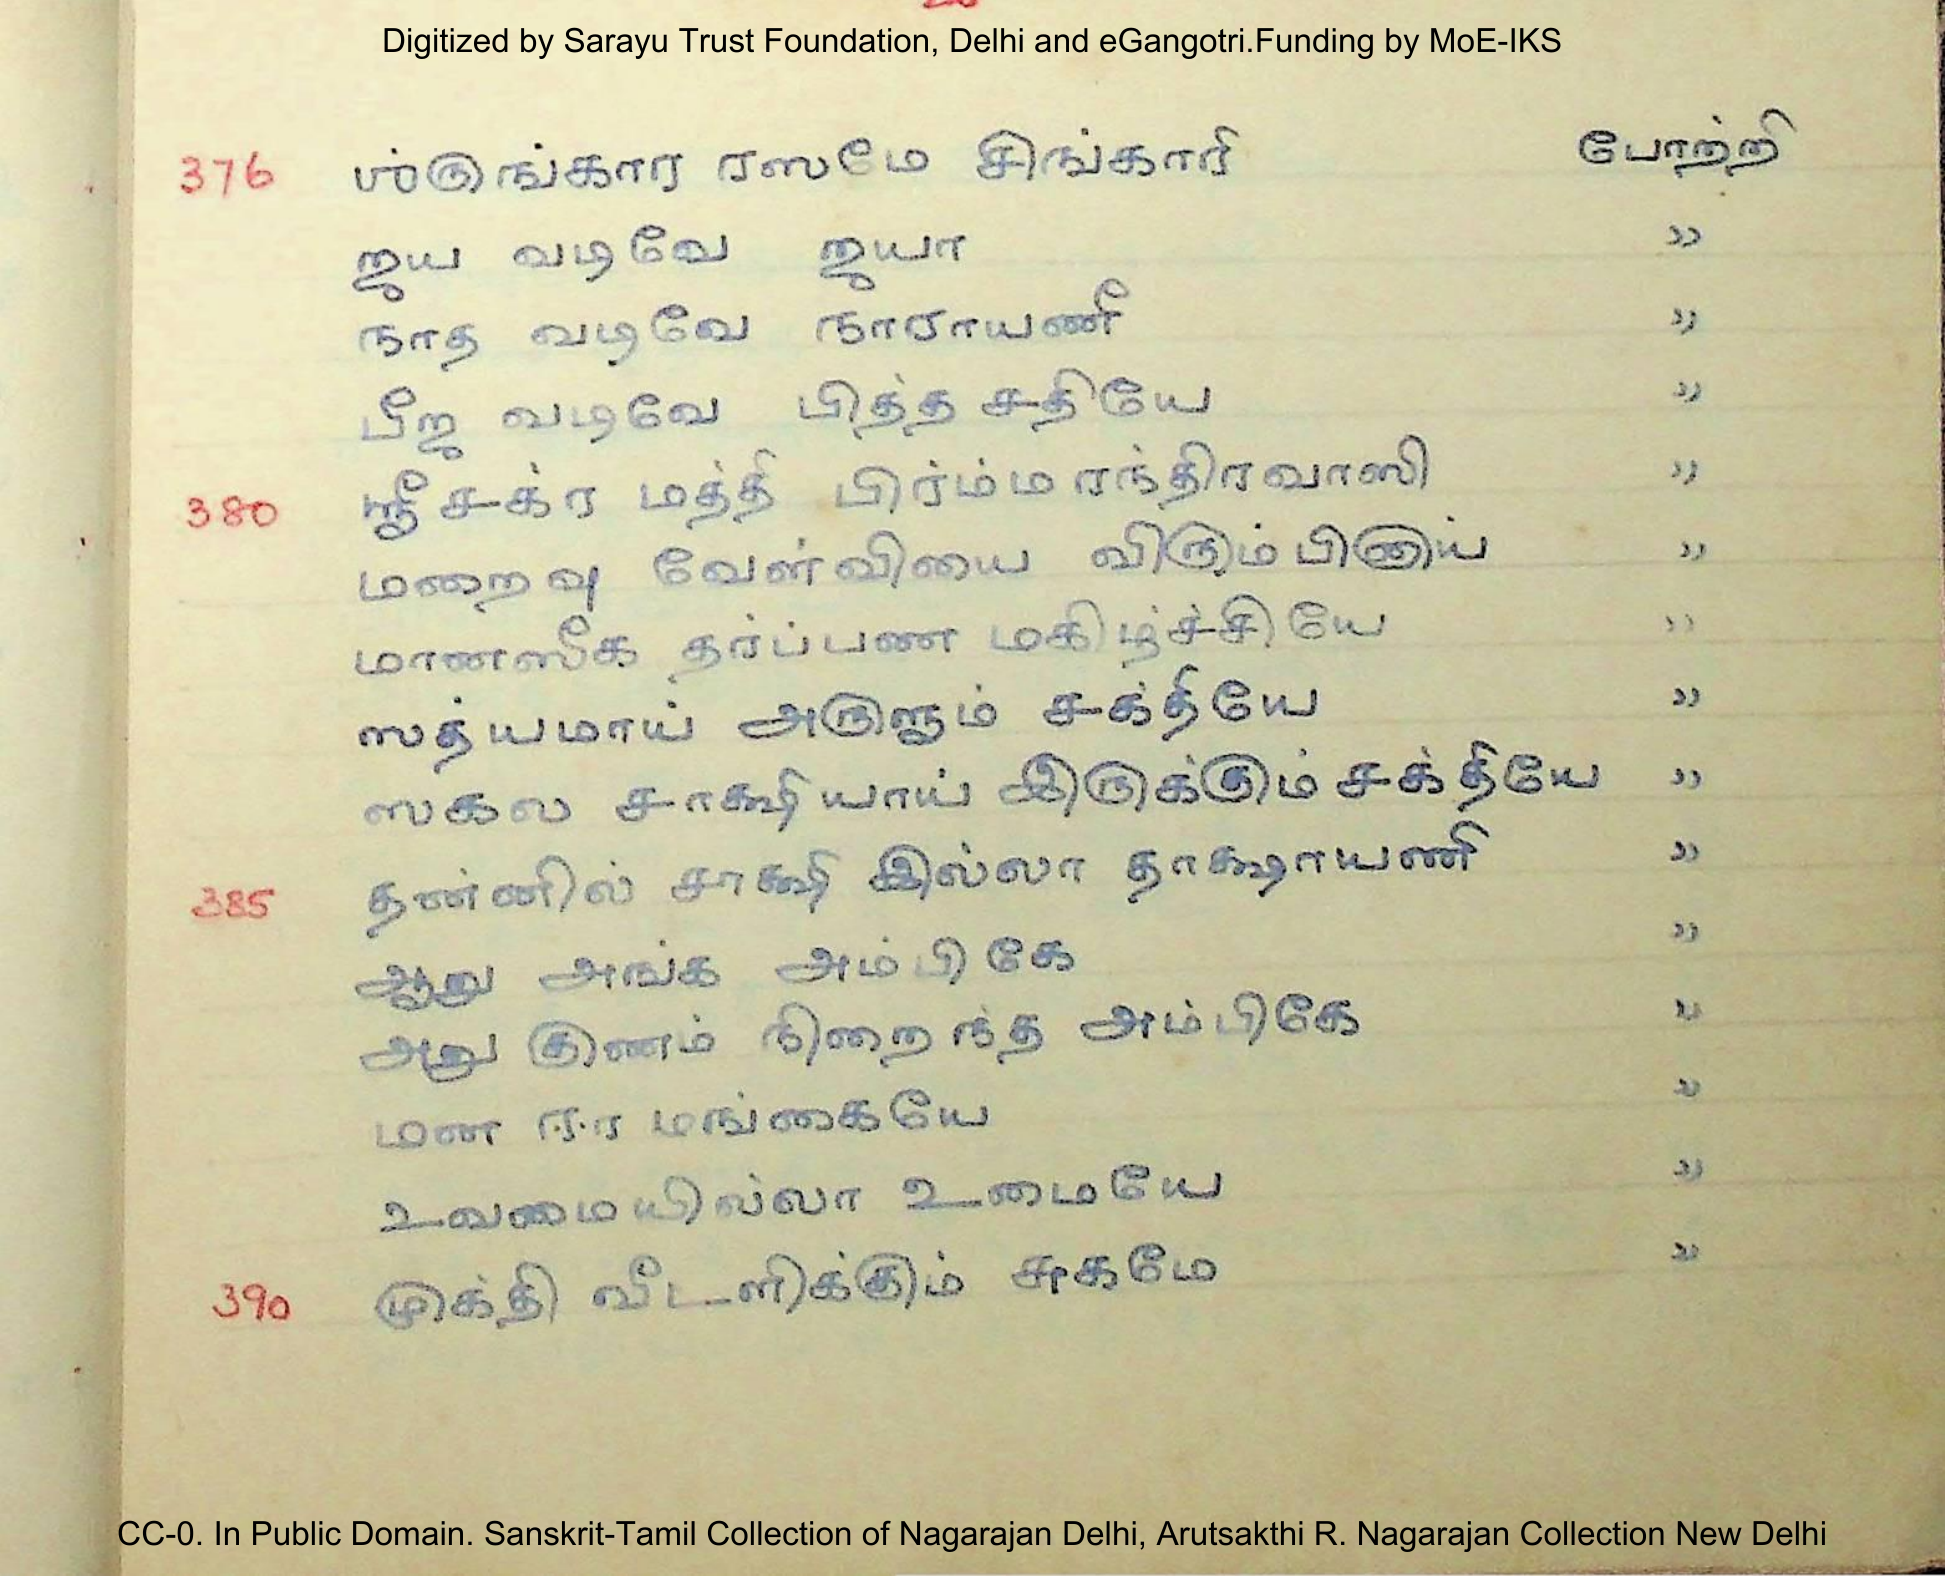 Digitized by Sarayu Trust Foundation, Delhi and eGangotri.Funding by MoE-IKS
376 ஶ்ருங்கார ரஸமே சிங்காரி போற்றி
ஜய வடிவே ஜயா "
நாத வடிவே நாராயணீ "
பீஜ வடிவே பித்த சதியே "
380 ஸ்ரீ சக்ர மத்தி பிர்ம்மரந்திரவாஸி "
மறைவு வேள்வியை விரும்பினாய் "
மானஸீக தர்ப்பண மகிழ்ச்சியே "
ஸத்யமாய் அருளும் சக்தியே "
ஸகல சாக்ஷியாய் இருக்கும் சக்தியே "
385 தன்னில் சாக்ஷி இல்லா தாக்ஷாயணி "
ஆறு அங்க அம்பிகே "
அறு குணம் நிறைந்த அம்பிகே "
மண ஈர மங்கையே "
உவமையில்லா உமையே "
390 முக்தி வீடளிக்கும் சுகமே "
CC-0. In Public Domain. Sanskrit-Tamil Collection of Nagarajan Delhi, Arutsakthi R. Nagarajan Collection New Delhi